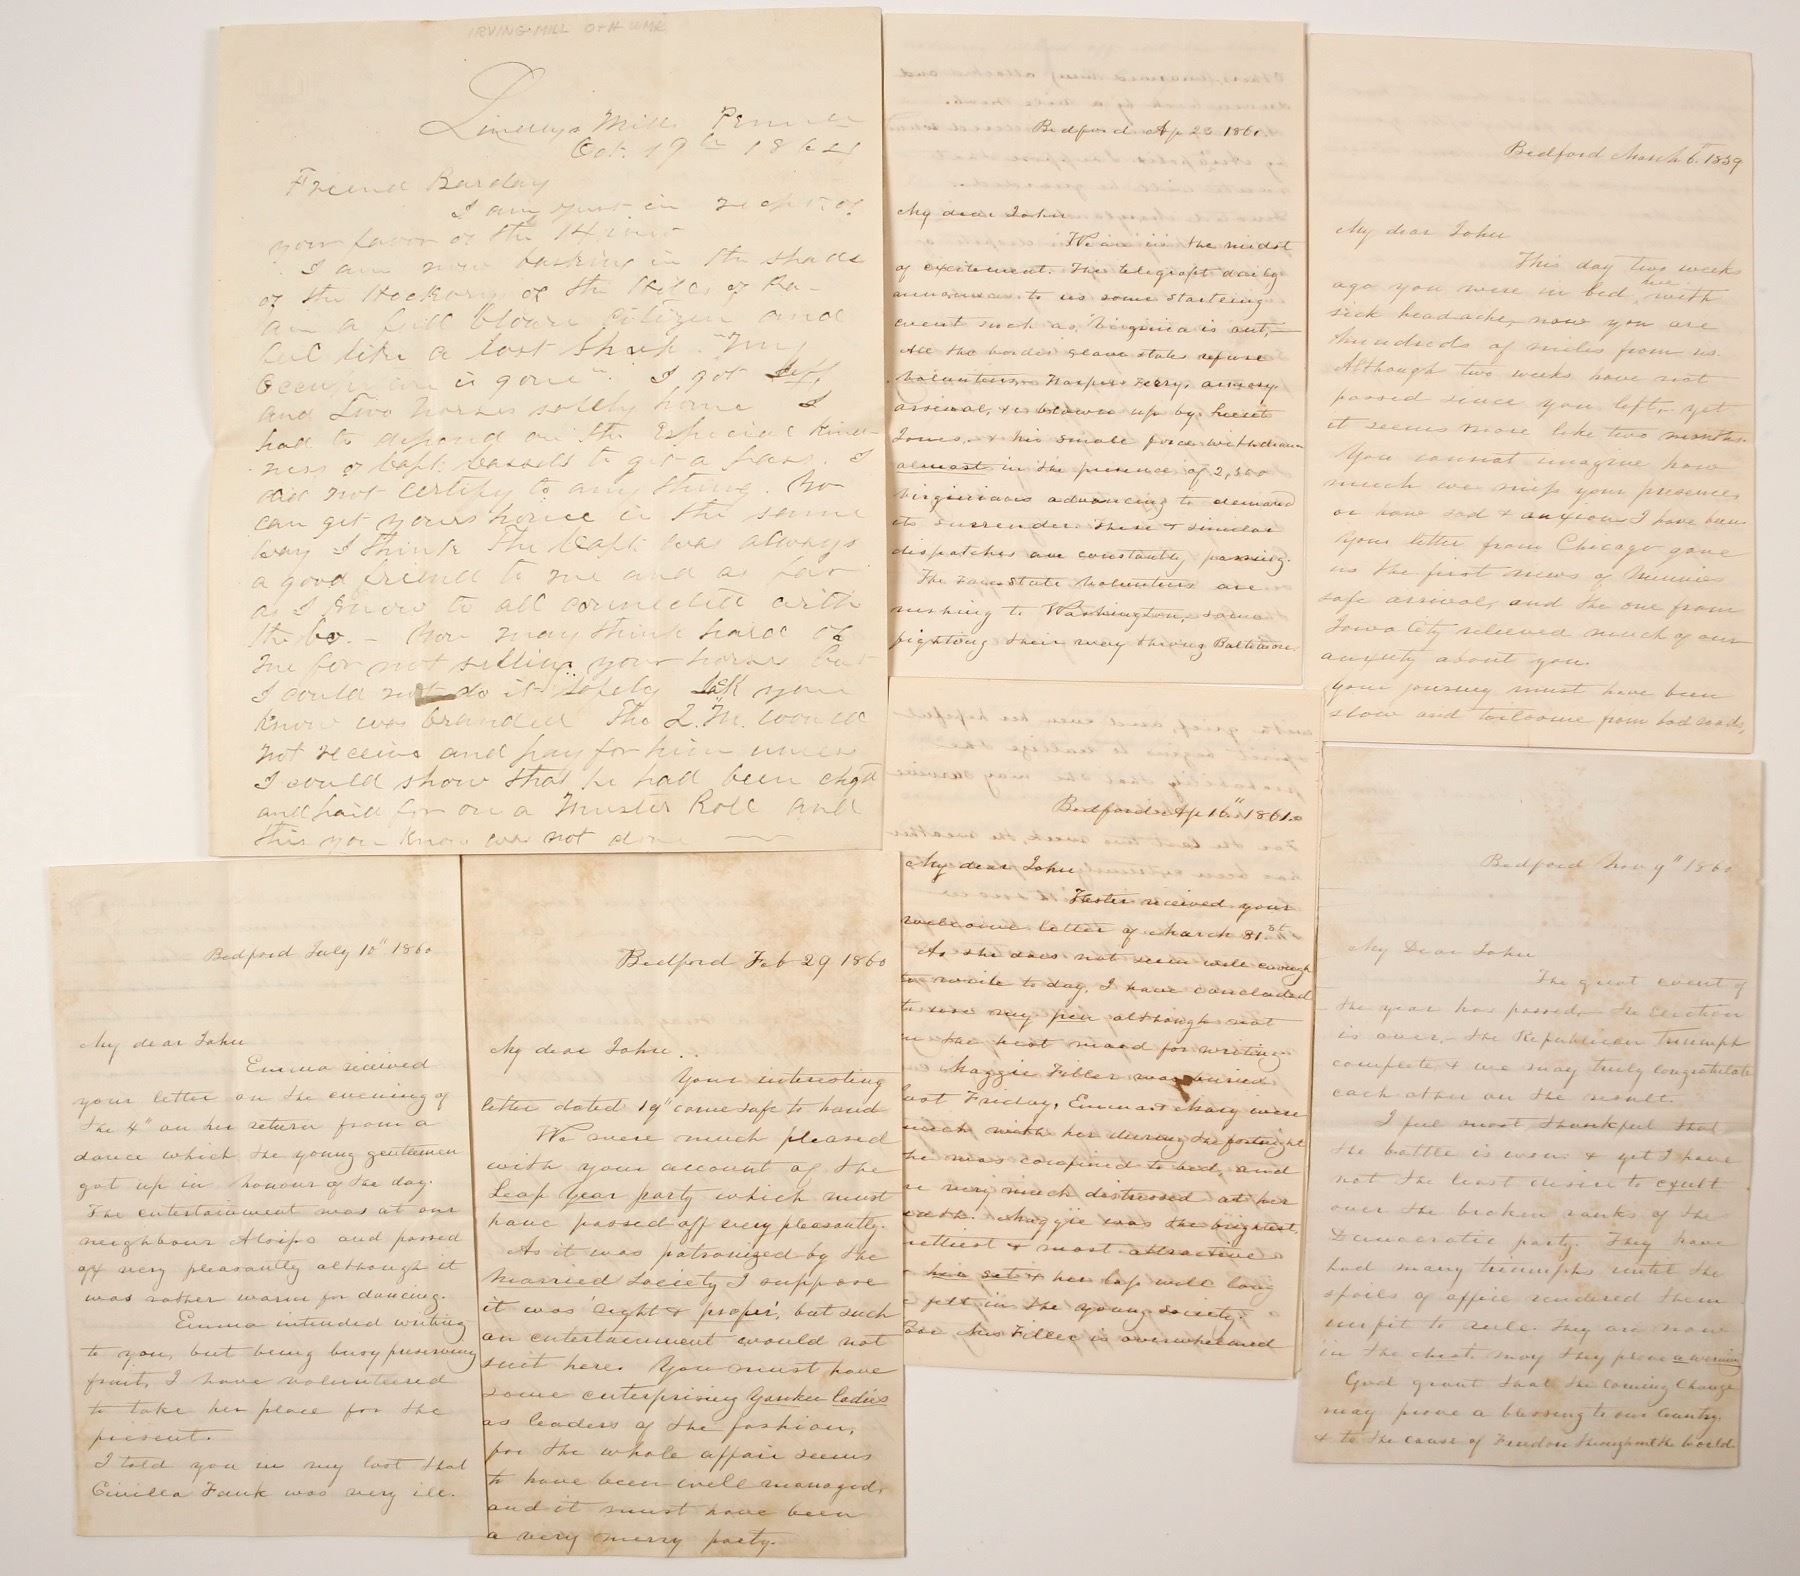 IRVING MILL
Mills Penn
Oct. 19th 1864
Friend Barclay
I am just in receipt of
your favor of the 14 inst
I am now basking in the shade
of the Hickorys of the Hills of Pa-
am a full blown citizen and
feel like a lost Sheep. "My
Occupation is gone". I got self
and two horses safely home I
had to depend on the Especial kind-
ness of Capt. Cassels to get a pass. I
did not certify to any thing. You
can get yours home in the same
way I think The Capt was always
a good friend to me and as far
as I know to all connected with
the Co. - You may think hard of
me for not selling your horse but
I could not do it safely Jack you
know was branded The Q.M. would
not receive and pay for him unless
I could show that he had been chgd
and paid for on a Muster Roll and
this you know was not done
Bedford Ap 23 1861.
My dear John
We are in the midst
of excitement. The telegraph daily
announces to us some startling
event such as, Virginia is out,-
All the border slave states refuse
Volunteers- Harpers Ferry, armory
arsenal, &c blown up by Lieut
Jones,- & his small force withdrawn
almost in the presence of 2,500
Virginians advancing to demand
its surrender. These & similar
dispatches are constantly passing.
The Free State Volunteers are
rushing to Washington, some
fighting their way through Baltimore
Bedford March 6th 1859
My dear John
This day two weeks
ago you were in bed here with
sick headache, now you are
hundreds of miles from us.
Although two weeks have not
passed since you left,- yet
it seems more like two months.
You cannot imagine how
much we miss your presence
or how sad & anxious I have been
Your letter from Chicago gave
us the first news of
safe arrival, and the one from
Iowa City relieved much of our
anxiety about you.
Your journey must have been
slow and toilsome from bad roads,
Bedford Ap 16" 1861.
My dear John
Hester received your
welcome letter of March 31st
As she does not seem well enough
to write today, I have concluded
to use my pen although not
in the best mood for writing
Maggie Filler was buried
last Friday, Emma & Mary were
much with her during the fortnight
she was confined to bed, and
are very much distressed at her
death. Maggie was the brightest,
prettiest & most attractive
her set & her loss will long
felt in the young society.
Poor Mrs Filler is overwhelmed
Bedford Nov 9" 1860
My Dear John
The great event of
the year has passed,- the election
is over,- the Republican Triumph
complete, & we may truly congratulate
each other on the result.
I feel most thankful that
the battle is won & yet I have
not the least desire to exult
over the broken ranks of the
Democratic party. They have
had many triumphs until the
spoils of office rendered them
unfit to rule. They are now
in the dust. May they prove a warning
God grant that the coming Change
may prove a blessing to our Country
& to the cause of Freedom throughout the World
Bedford July 10" 1860
My dear John
Emma received
your letter on the evening of
the 4" on her return from a
dance which the young gentlemen
got up in honour of the day.
The entertainment was at our
neighbour Alsips and passed
off very pleasantly although it
was rather warm for dancing.
Emma intended writing
to you, but being busy preserving
fruit, I have volunteered
to take her place for the
present.
I told you in my last that
was very ill.
Bedford Feb 29 1860
My dear John.
Your interesting
letter dated 19" came safe to hand
We were much pleased
with your account of the
Leap Year party which must
have passed off very pleasantly.
As it was patronized by the
married society I suppose
it was 'right & proper', but such
an entertainment would not
suit here. You must have
some enterprising Yankee ladies
as leaders of the fashion,
for the whole affair seems
to have been well managed,
and it must have been
a very merry party.